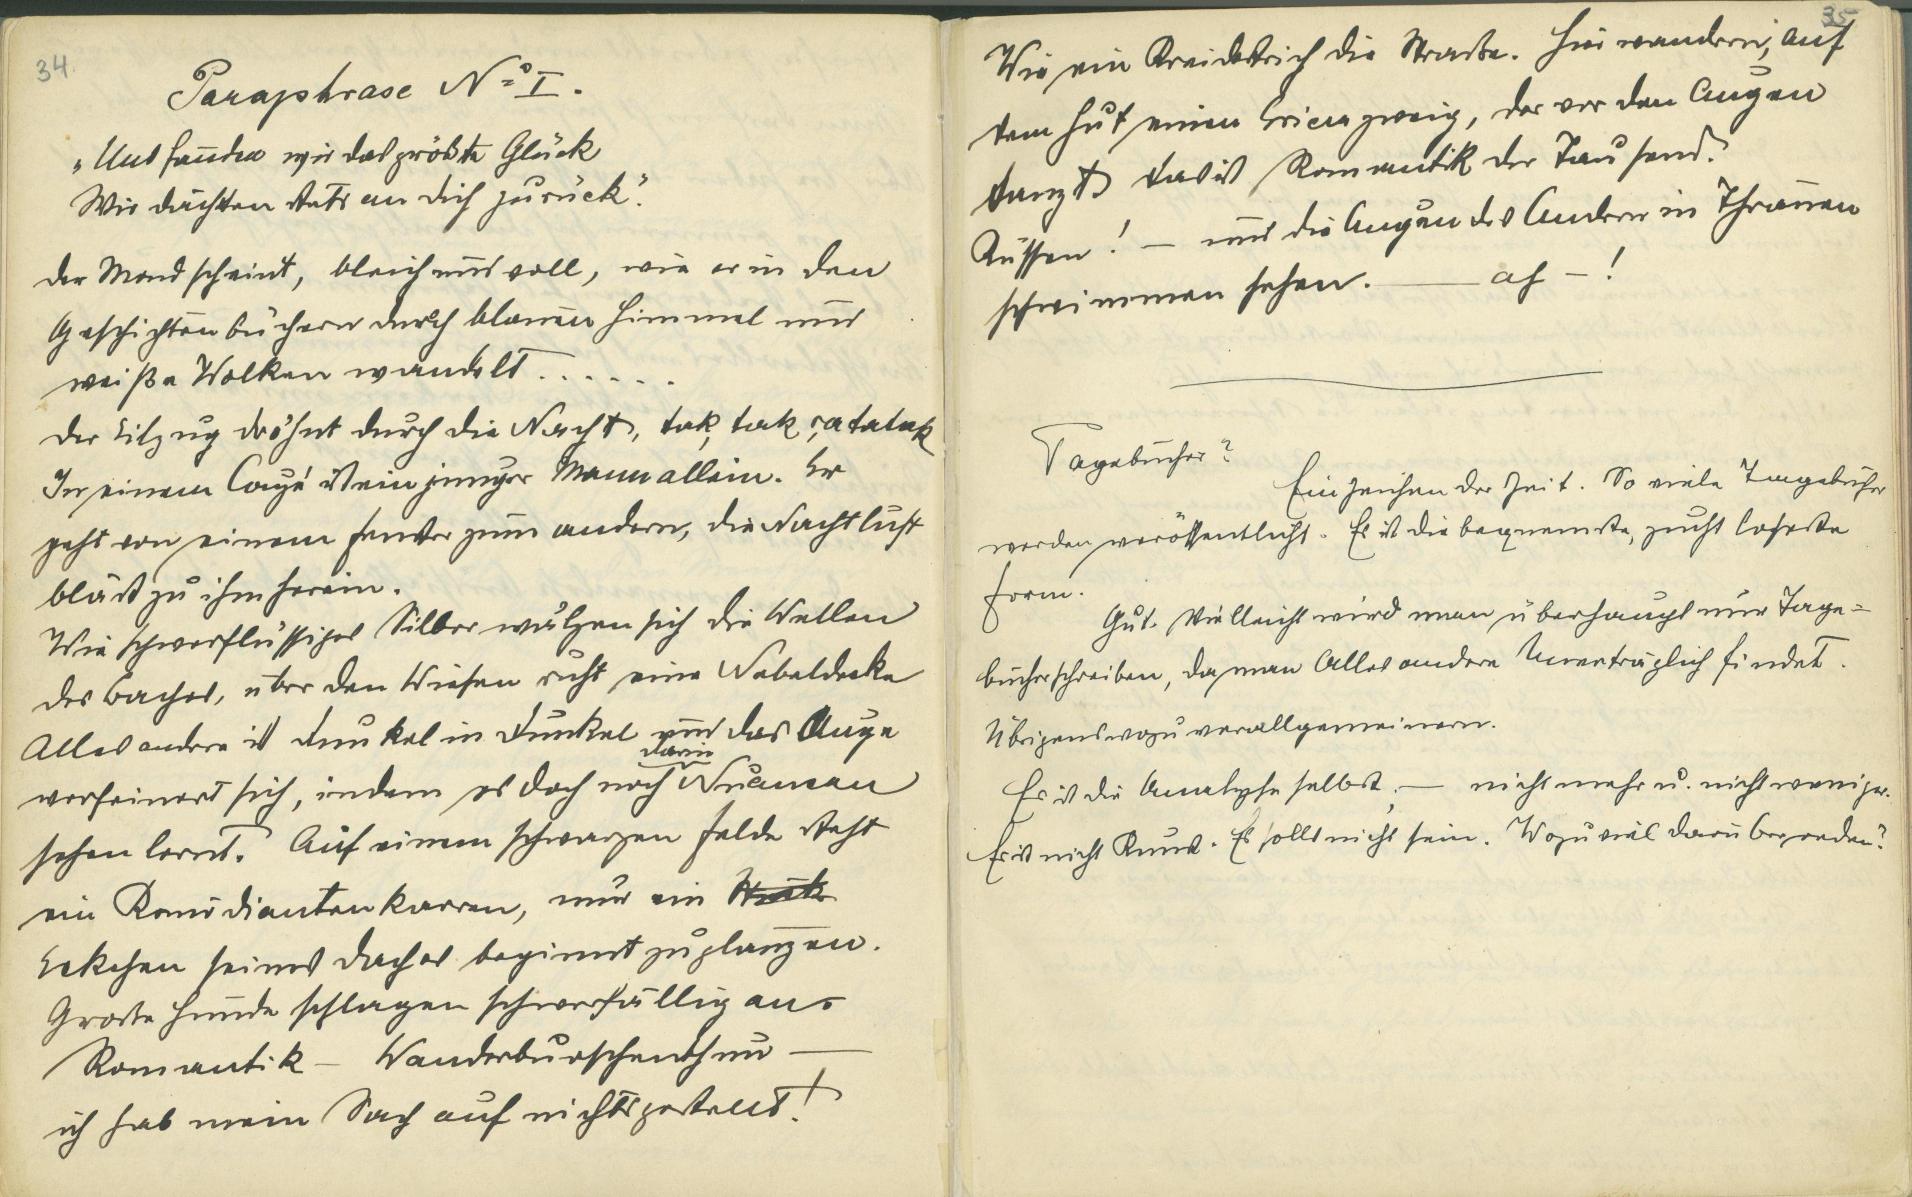 34
Paraphrase No I.
„Und fänden wir das größte Glück
Wir dächten stets an dich zurück“.
Der Mond scheint, bleich und voll, wie er in den
Geschichtenbüchern durch blauen Himmel und
weiße Wolken wandelt . . . . . .
Der Eilzug dröhnt durch die Nacht, tak, tak, ratatak
In einem Coupé ist ein junger Mann allein. Er
geht von einem Fenster zum andern, die Nachtluft
bläst zu ihm herein.
Wie schwerflüssiges Silber wälzen sich die Wellen
des Baches, über den Wiesen ruht eine Nebeldecke
Alles andere ist dunkel in dunkel und das Auge
verfeinert sich, indem es doch noch darin Nuancen
sehen lernt. Auf einem schwarzen Felde steht
ein Komödiantenkarren, nur ein
Eckchen seines Daches beginnt zu glänzen.
Große Hunde schlagen schwerfällig an.
Romantik – Wanderburschenthum —
ich hab mein Sach auf nichts gestellt!
35
Wie ein Kreidestrich die Straße. Hier wandern, auf
dem Hut einen zweig, der vor den Augen
tanzt das ist Romantik der Tausend.
Küssen! — und die Augen des Andern in Thränen
schwimmen sehen. —— ah – !
Tagebücher?
Ein Zeichen der Zeit. So viele Tagebücher
werden veröffentlicht. Es ist die bequemste, zuchtloseste
Form.
Gut. Vielleicht wird man überhaupt nur Tage=
bücher schreiben, da man Alles andere Unerträglich findet.
Übrigens wozu verallgemeinern.
Es ist die Analyse selbst; — nicht mehr u. nicht weniger.
Es ist nicht Kunst. Es solls nicht sein. Wozu viel darüber reden?